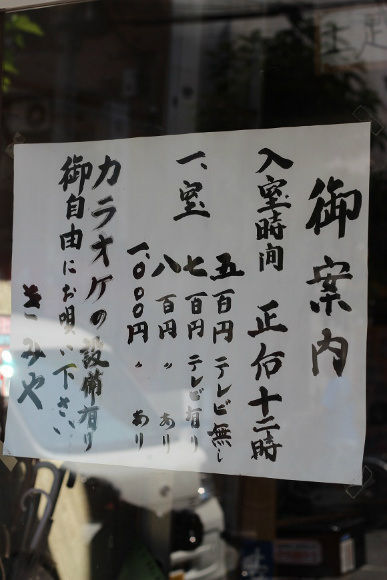 御案内
入室時間 正午十二時
一、室
五百円 テレビ無し
七百円 テレビ有り
八百円 〃 あり
一、〇〇〇円 〃 あり
カラオケの設備有り
御自由にお唄い下さい
きみや